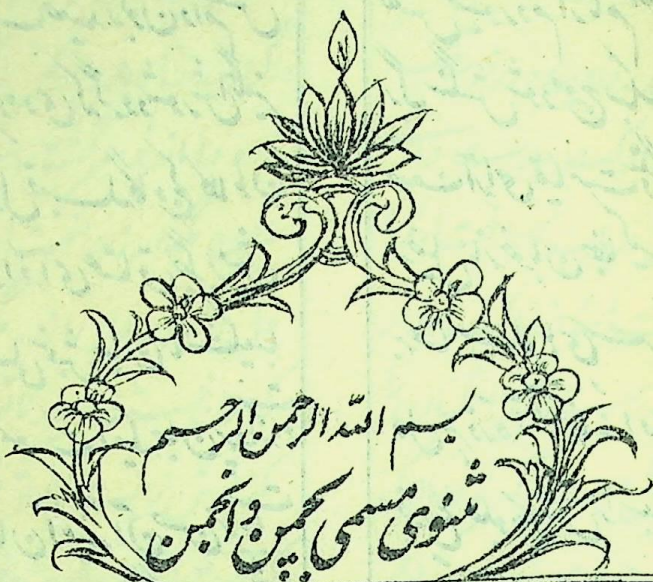 بسم الله الرحمن الرحیم
مثنوی مسمی بچمن و انجمن